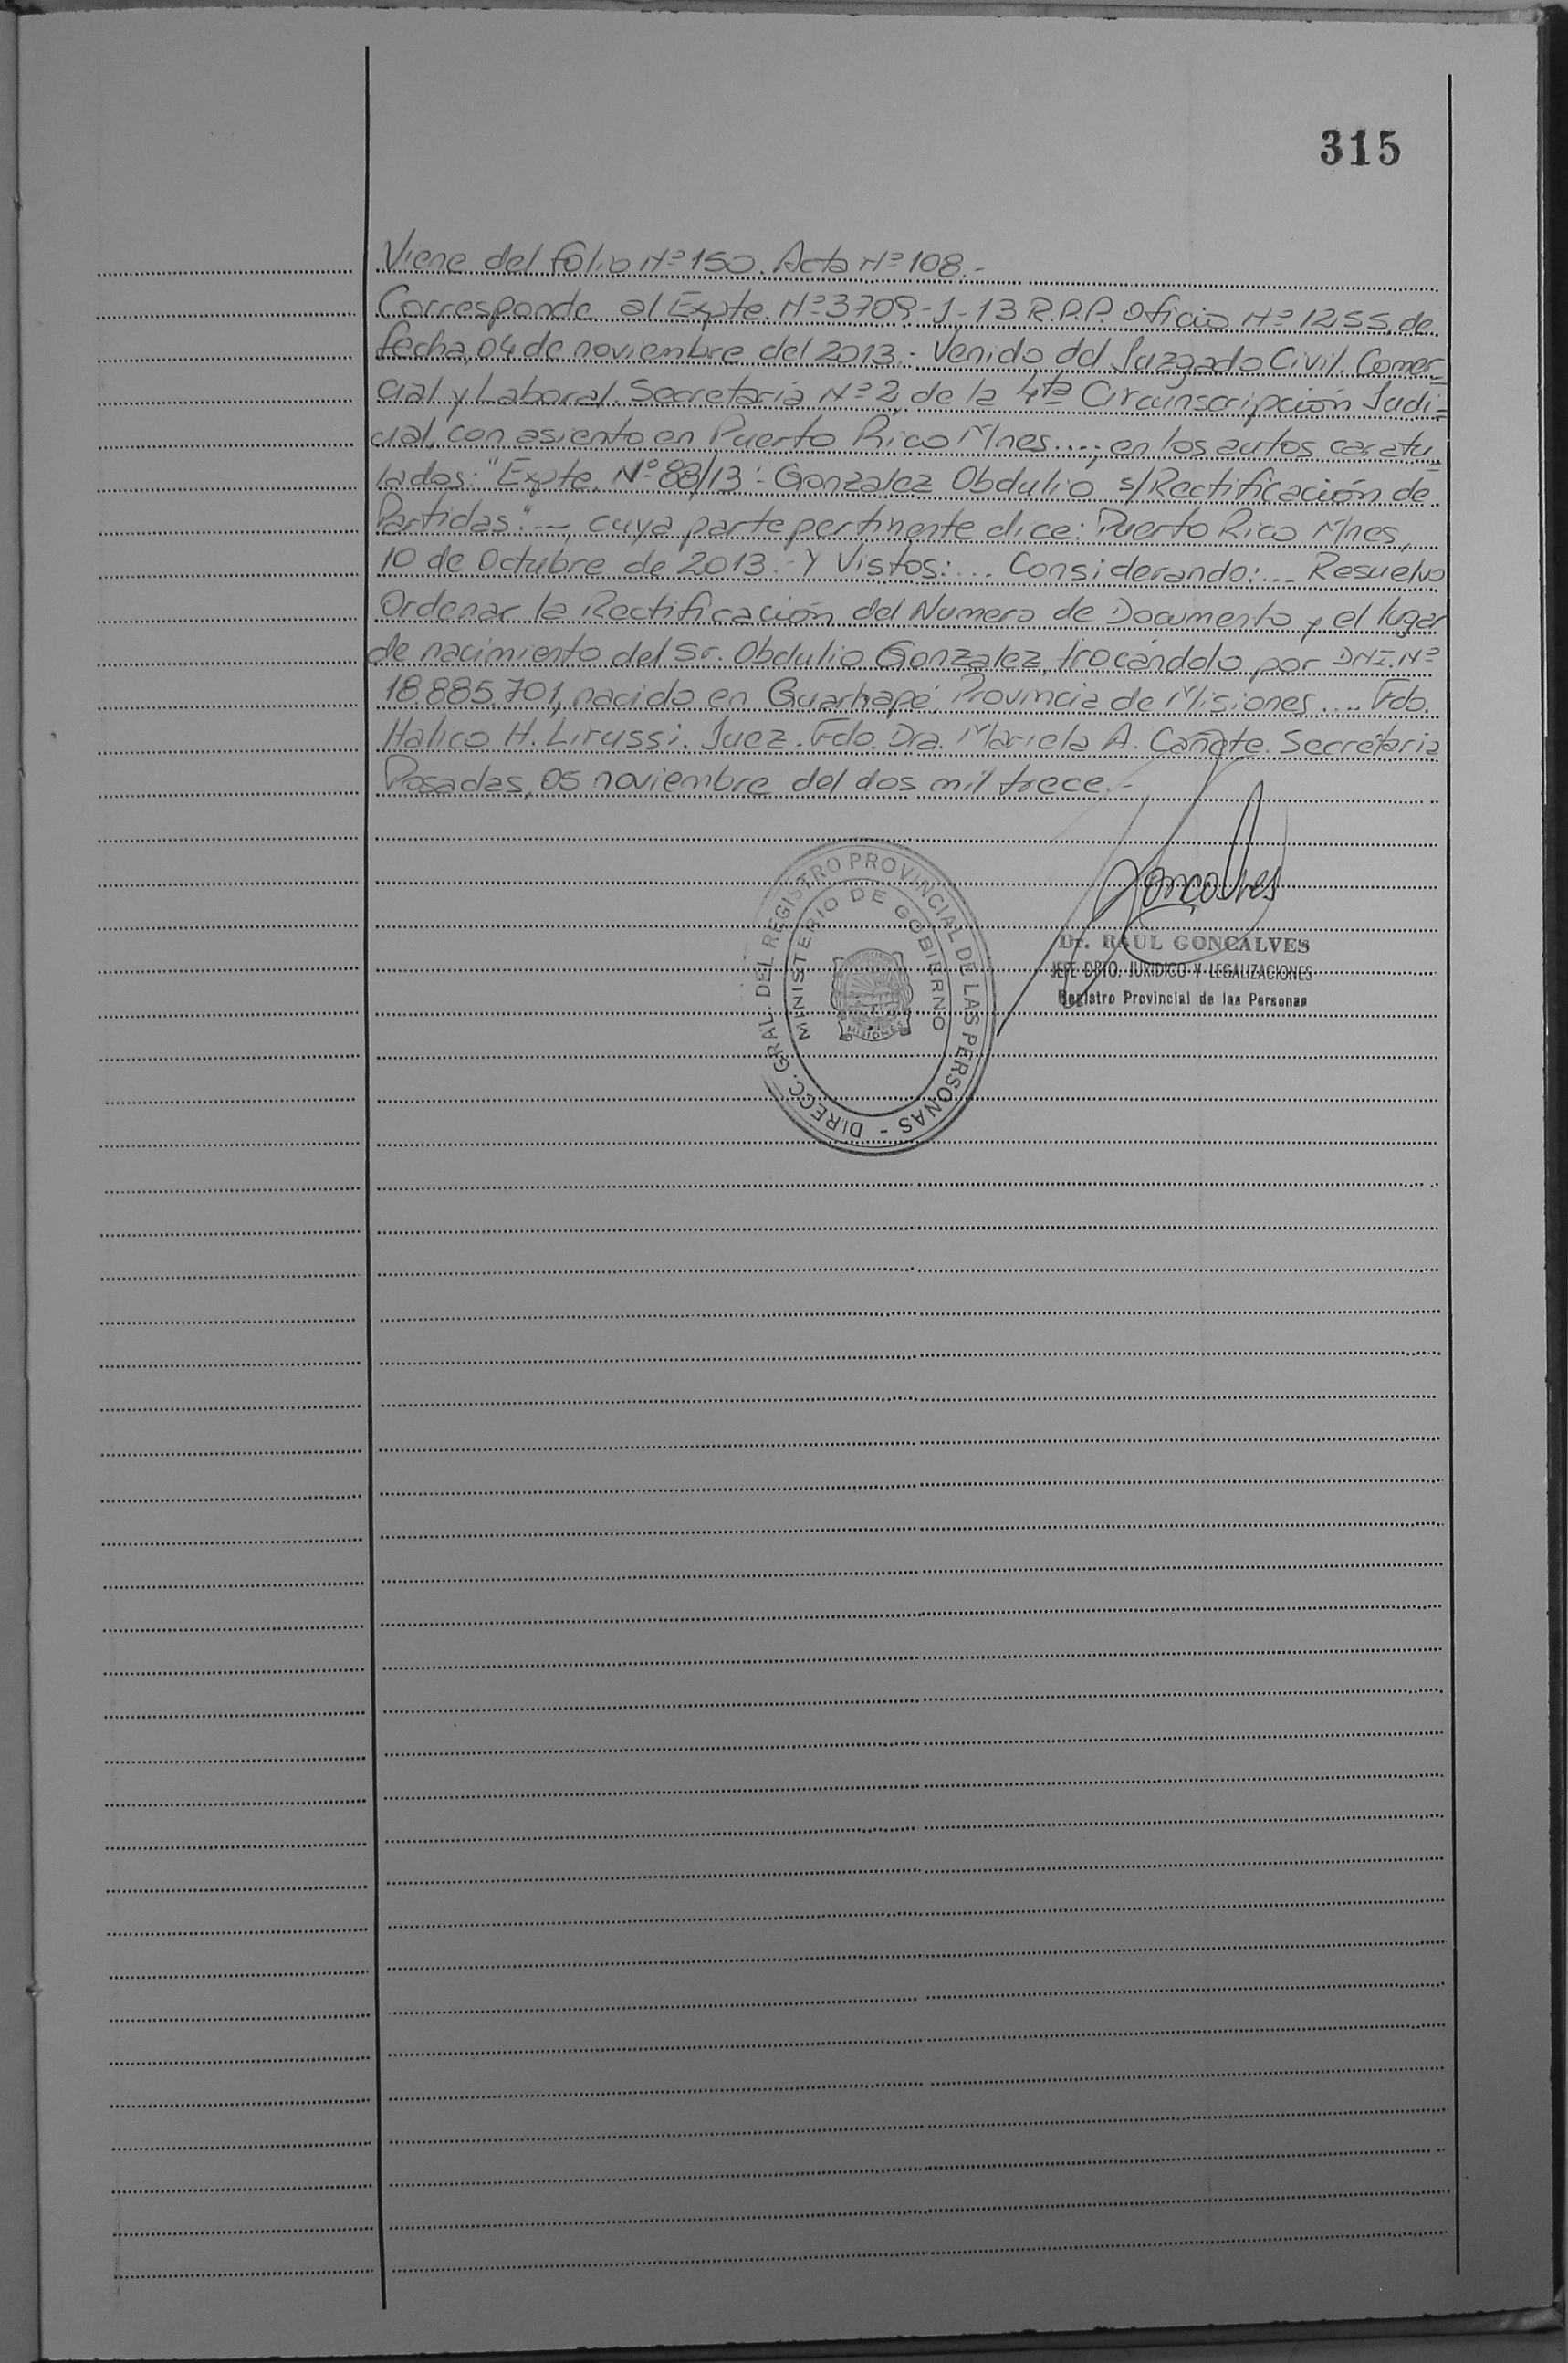 315
Viene del folio Nº 150. Acta Nº 108.-
Corresponde al Expte. Nº 3709-J-13 R.P.P. Oficio Nº 1255 de
fecha, 04 de noviembre del 2013.- Venido del Juzgado Civil. Comer-
cial y Laboral. Secretaría Nº 2, de la 4ta Circunscripción Judi=
cial, con asiento en Puerto Rico Mnes...., en los autos caratu=
lados: "Expte. Nº 88/13 - Gonzalez Obdulio s/Rectificación de
Partidas".-, cuya parte pertinente dice: Puerto Rico Mnes,
10 de Octubre de 2013.- Y Vistos:... Considerando:... Resuelvo
Ordenar la Rectificación del Numero de Documento y el lugar
de nacimiento del Sr. Obdulio Gonzalez, trocándolo por DNI. Nº
18.885.701, nacido en Guarhapé, Provincia de Misiones.... Fdo.
Halico H. Lirussi. Juez. Fdo. Dra. Mariela A. Cañete. Secretaria
Posadas, 05 noviembre del dos mil trece.-
Goncalves
Dr. RAUL GONCALVES
JEFE DPTO. JURIDICO Y LEGALIZACIONES
Registro Provincial de las Personas
DIRECC. GRAL. DEL REGISTRO PROVINCIAL DE LAS PERSONAS -
MINISTERIO DE GOBIERNO
MISIONES